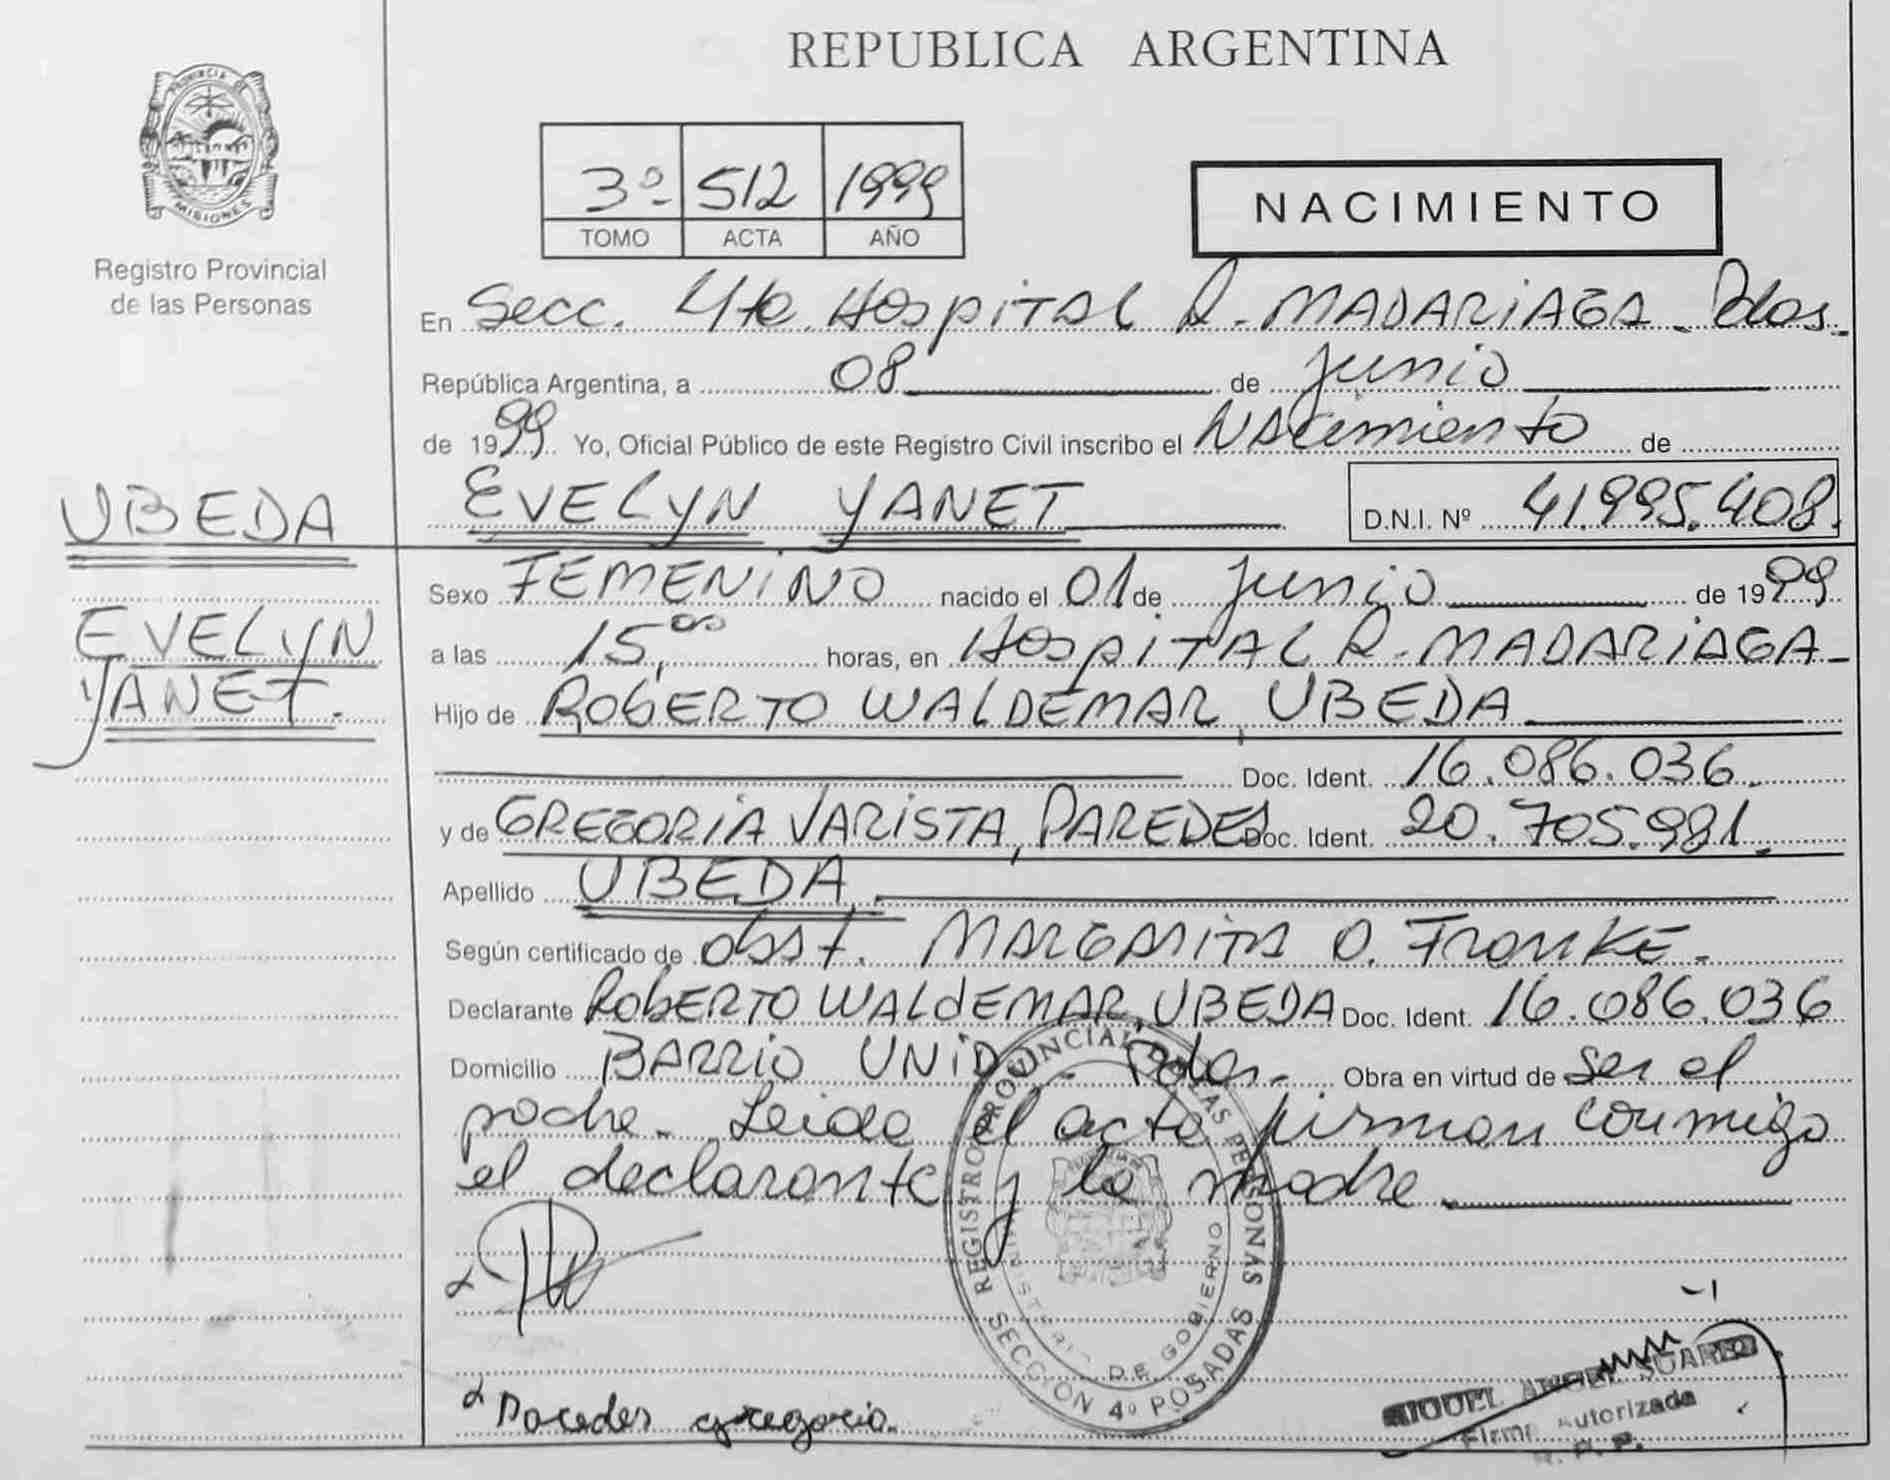 REPUBLICA ARGENTINA
PROVINCIA DE MISIONES
Registro Provincial
de las Personas
3º 512 1999
TOMO ACTA AÑO
NACIMIENTO
En Secc. 4ta. Hospital R. MADARIAGA - Pdas.
República Argentina, a 08 de junio
de 1999 Yo, Oficial Público de este Registro Civil inscribo el Nacimiento de
EVELYN YANET D.N.I. Nº 41.995.408.
UBEDA
EVELYN
YANET.
Sexo FEMENINO nacido el 01 de junio de 1999
a las 15,00 horas, en HOSPITAL R. MADARIAGA -
Hijo de ROBERTO WALDEMAR, UBEDA
Doc. Ident. 16.086.036.
y de GREGORIA VARISTA, PAREDES Doc. Ident. 20.705.981.
Apellido UBEDA.
Según certificado de obst. MARGARITA O. FRANKE.
Declarante ROBERTO WALDEMAR, UBEDA Doc. Ident. 16.086.036
Domicilio BARRIO UNIDO - Pdas. Obra en virtud de ser el
padre. Leida el acta firman conmigo
el declarante y la madre.
REGISTRO PROVINCIAL DE LAS PERSONAS
MINISTERIO DE GOBIERNO
SECCION 4º POSADAS
MIGUEL ANGEL SUAREZ
Firma Autorizada
R. P. P.
Paredes gregoria.